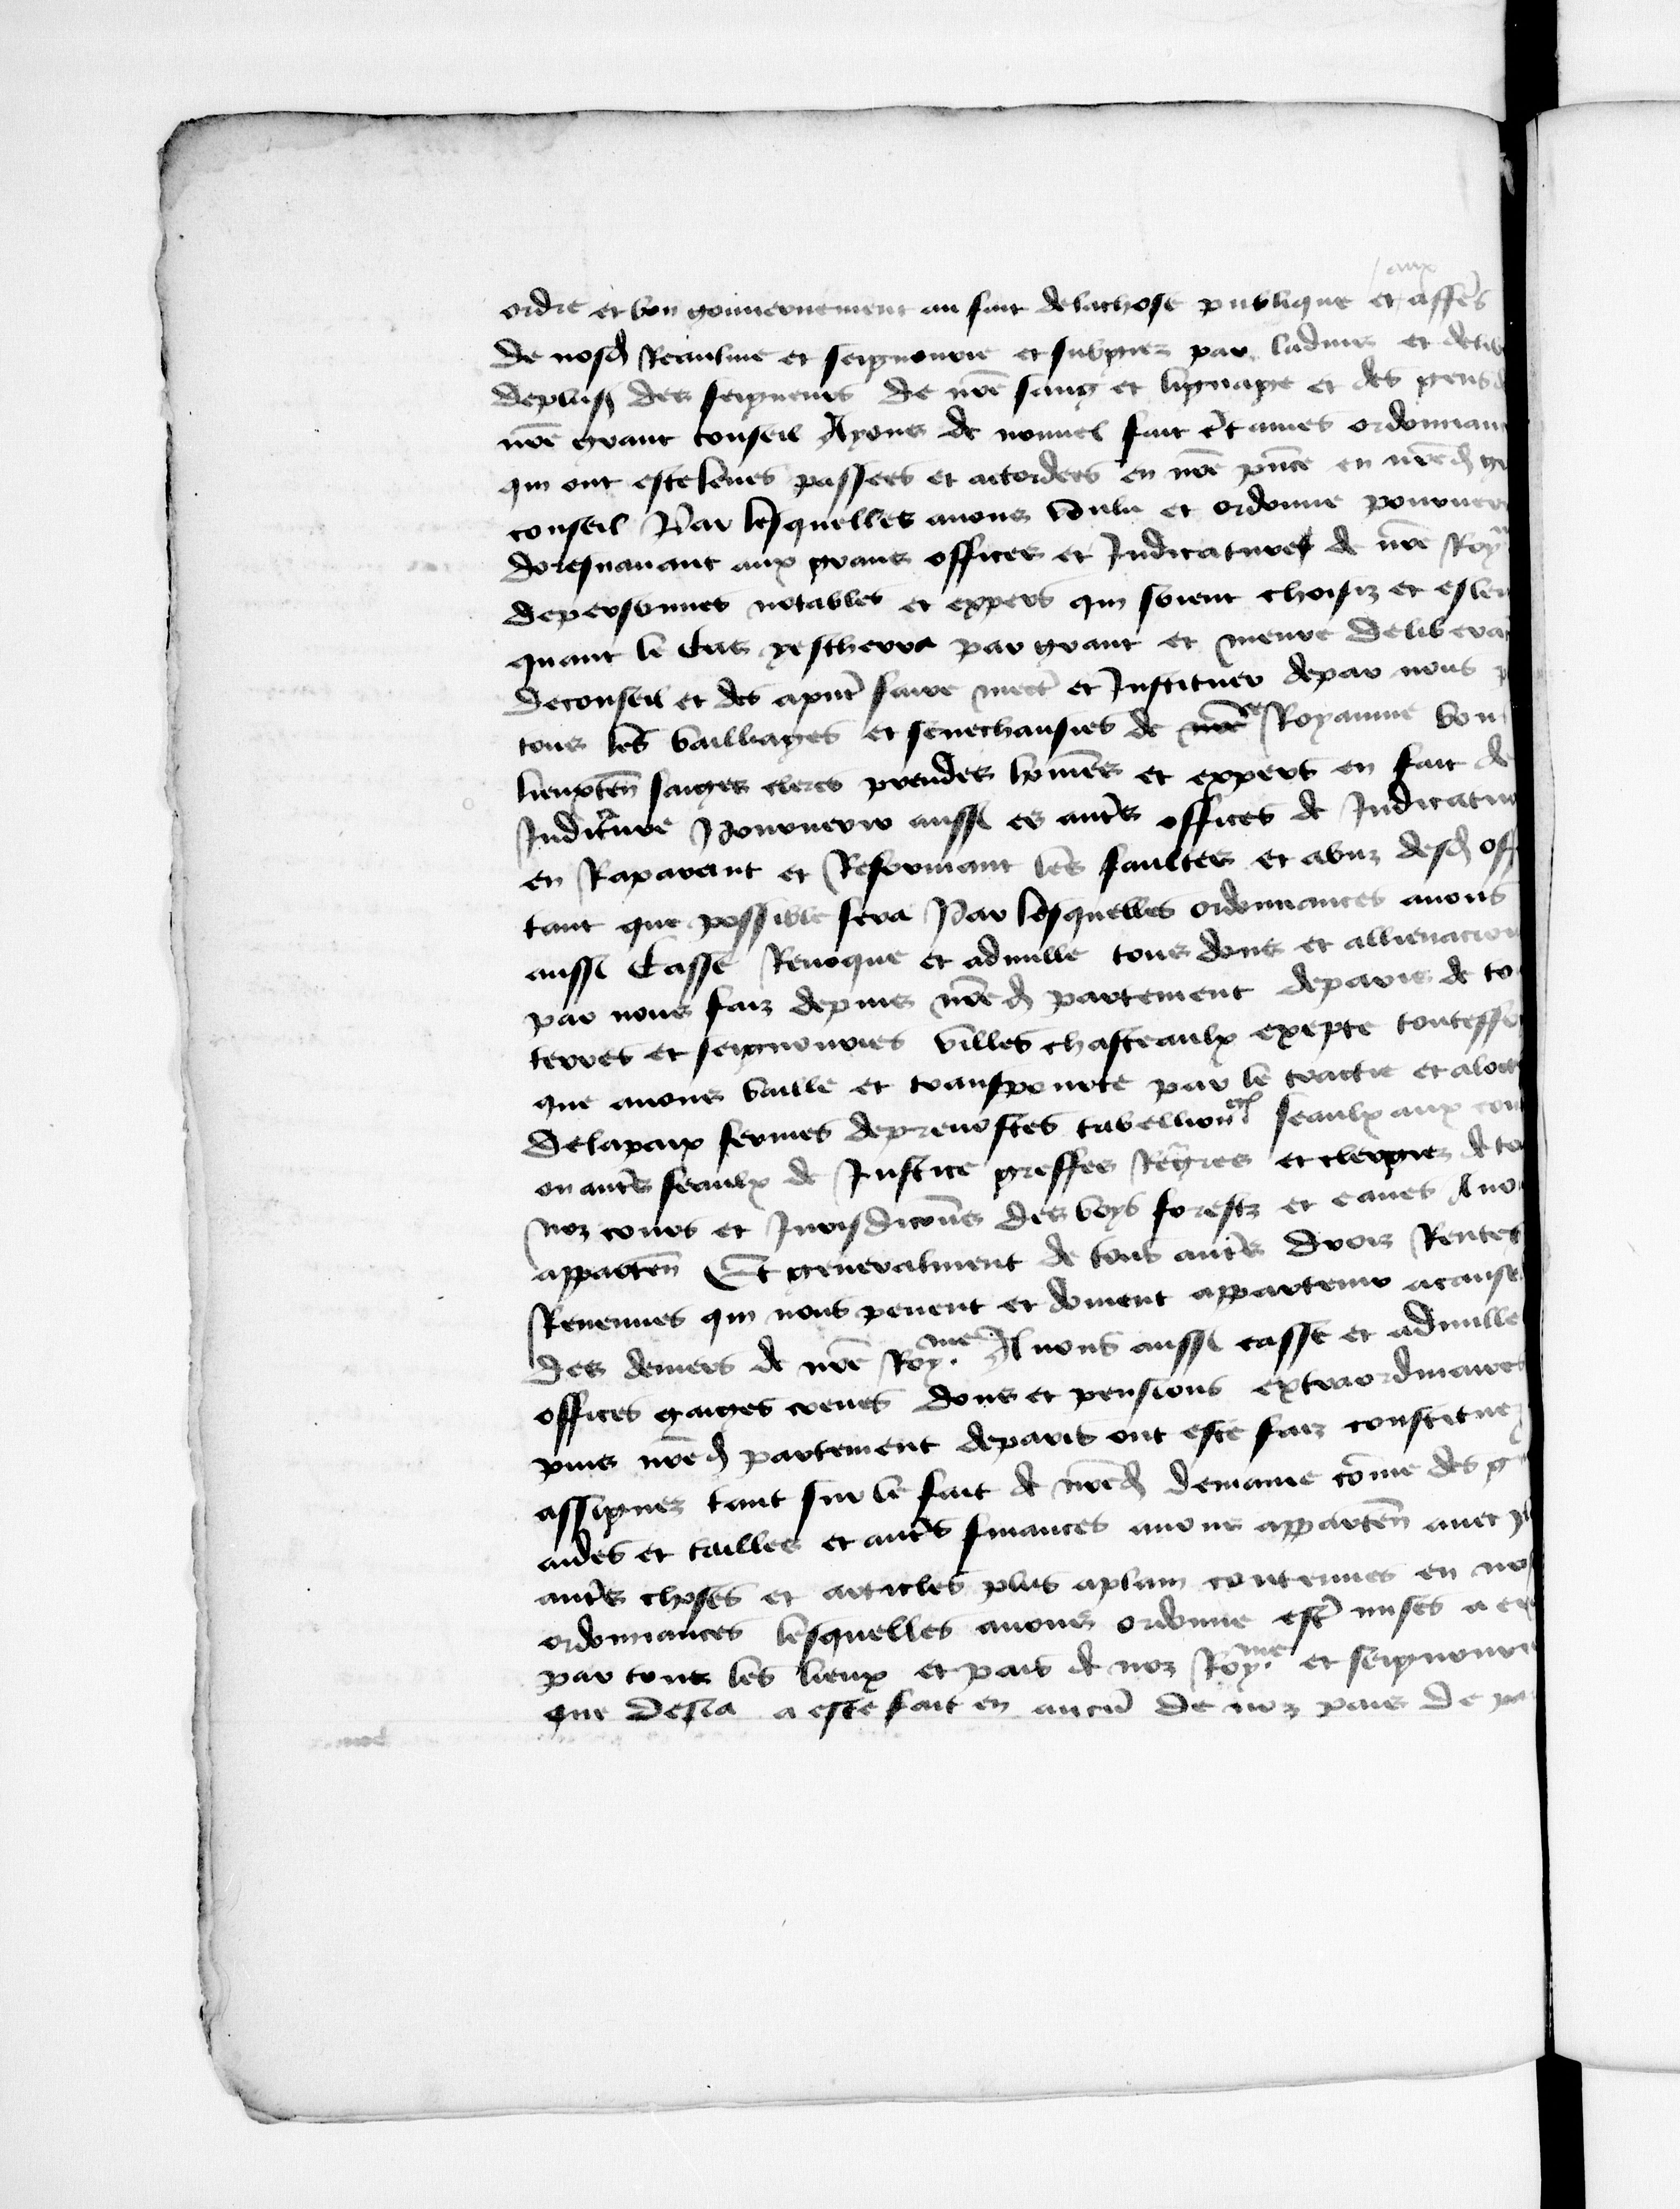 aux
ordre et bon gouvernement au fait de la chose publique et affes
de nosd Reaulme et seignourie et subgiez par ladvis et delib
de plus des seigneurs de nre sang et lignaige et des gens d
nre grant conseil Ayons de nouvel fait ctaines ordonnanc
qui ont este leues passees et accordees en nre pnce en nred g
conseil Par lesquelles avons voulu et ordonne pourveoir
doresnavant aux grans offices et Judicatures de nre Roy
de personnes notables et expers qui soient choisiz et esleu
quant le Cas yescherra par grant et meure deliberac
de conseil et des apnt faire mectr et Instituer depar nous p
tous les bailliages et seneschausies de nre ce Royaume bon
lieuxten saiges clercs preudes hommes et expers en fait de
Judicture Pourveoir aussi es autrs offices de Judicatu
en Raparant et Reformant les faultes et abuz desd off
tant que possible sera Par lesquelles ordonnances avons
aussi Casse Revoque et adnulle tous dons et allienacion
par nous faiz depuis nred partement de paris de to
terres et seignouries villes chasteaulx exepte toutesfo
que avons baille et transpourte par le traictie et
de la paix fermes de prevostes tabellion seaulx aux con
ou autrs seaulx de Justice greffes Regres et clergies de to
noz cours et Jurisdicions des boys forestz et eaues A no
apparten Et generalment de tous autrs droiz Rentes
Revenues qui nous peuent et doivent appartenir a cause
des demers de nre Roy.me Avons aussi casse et adnulle
offices gaiges creues dons et pensions extraordinaires
puis nred partement de paris ont este faiz constituez
assignez tant sur le fait de nred demaine comme des g
aides et tailles et autrs finances a nous apparten avec pl
autrs choses et articles plus aplain contenues en nos
ordonnances lesquelles avons ordonne estr mises a ex
par tous les lieux et pais de noz Roy.me et seignouri
que desia a este fait en aucun de noz pais de pa